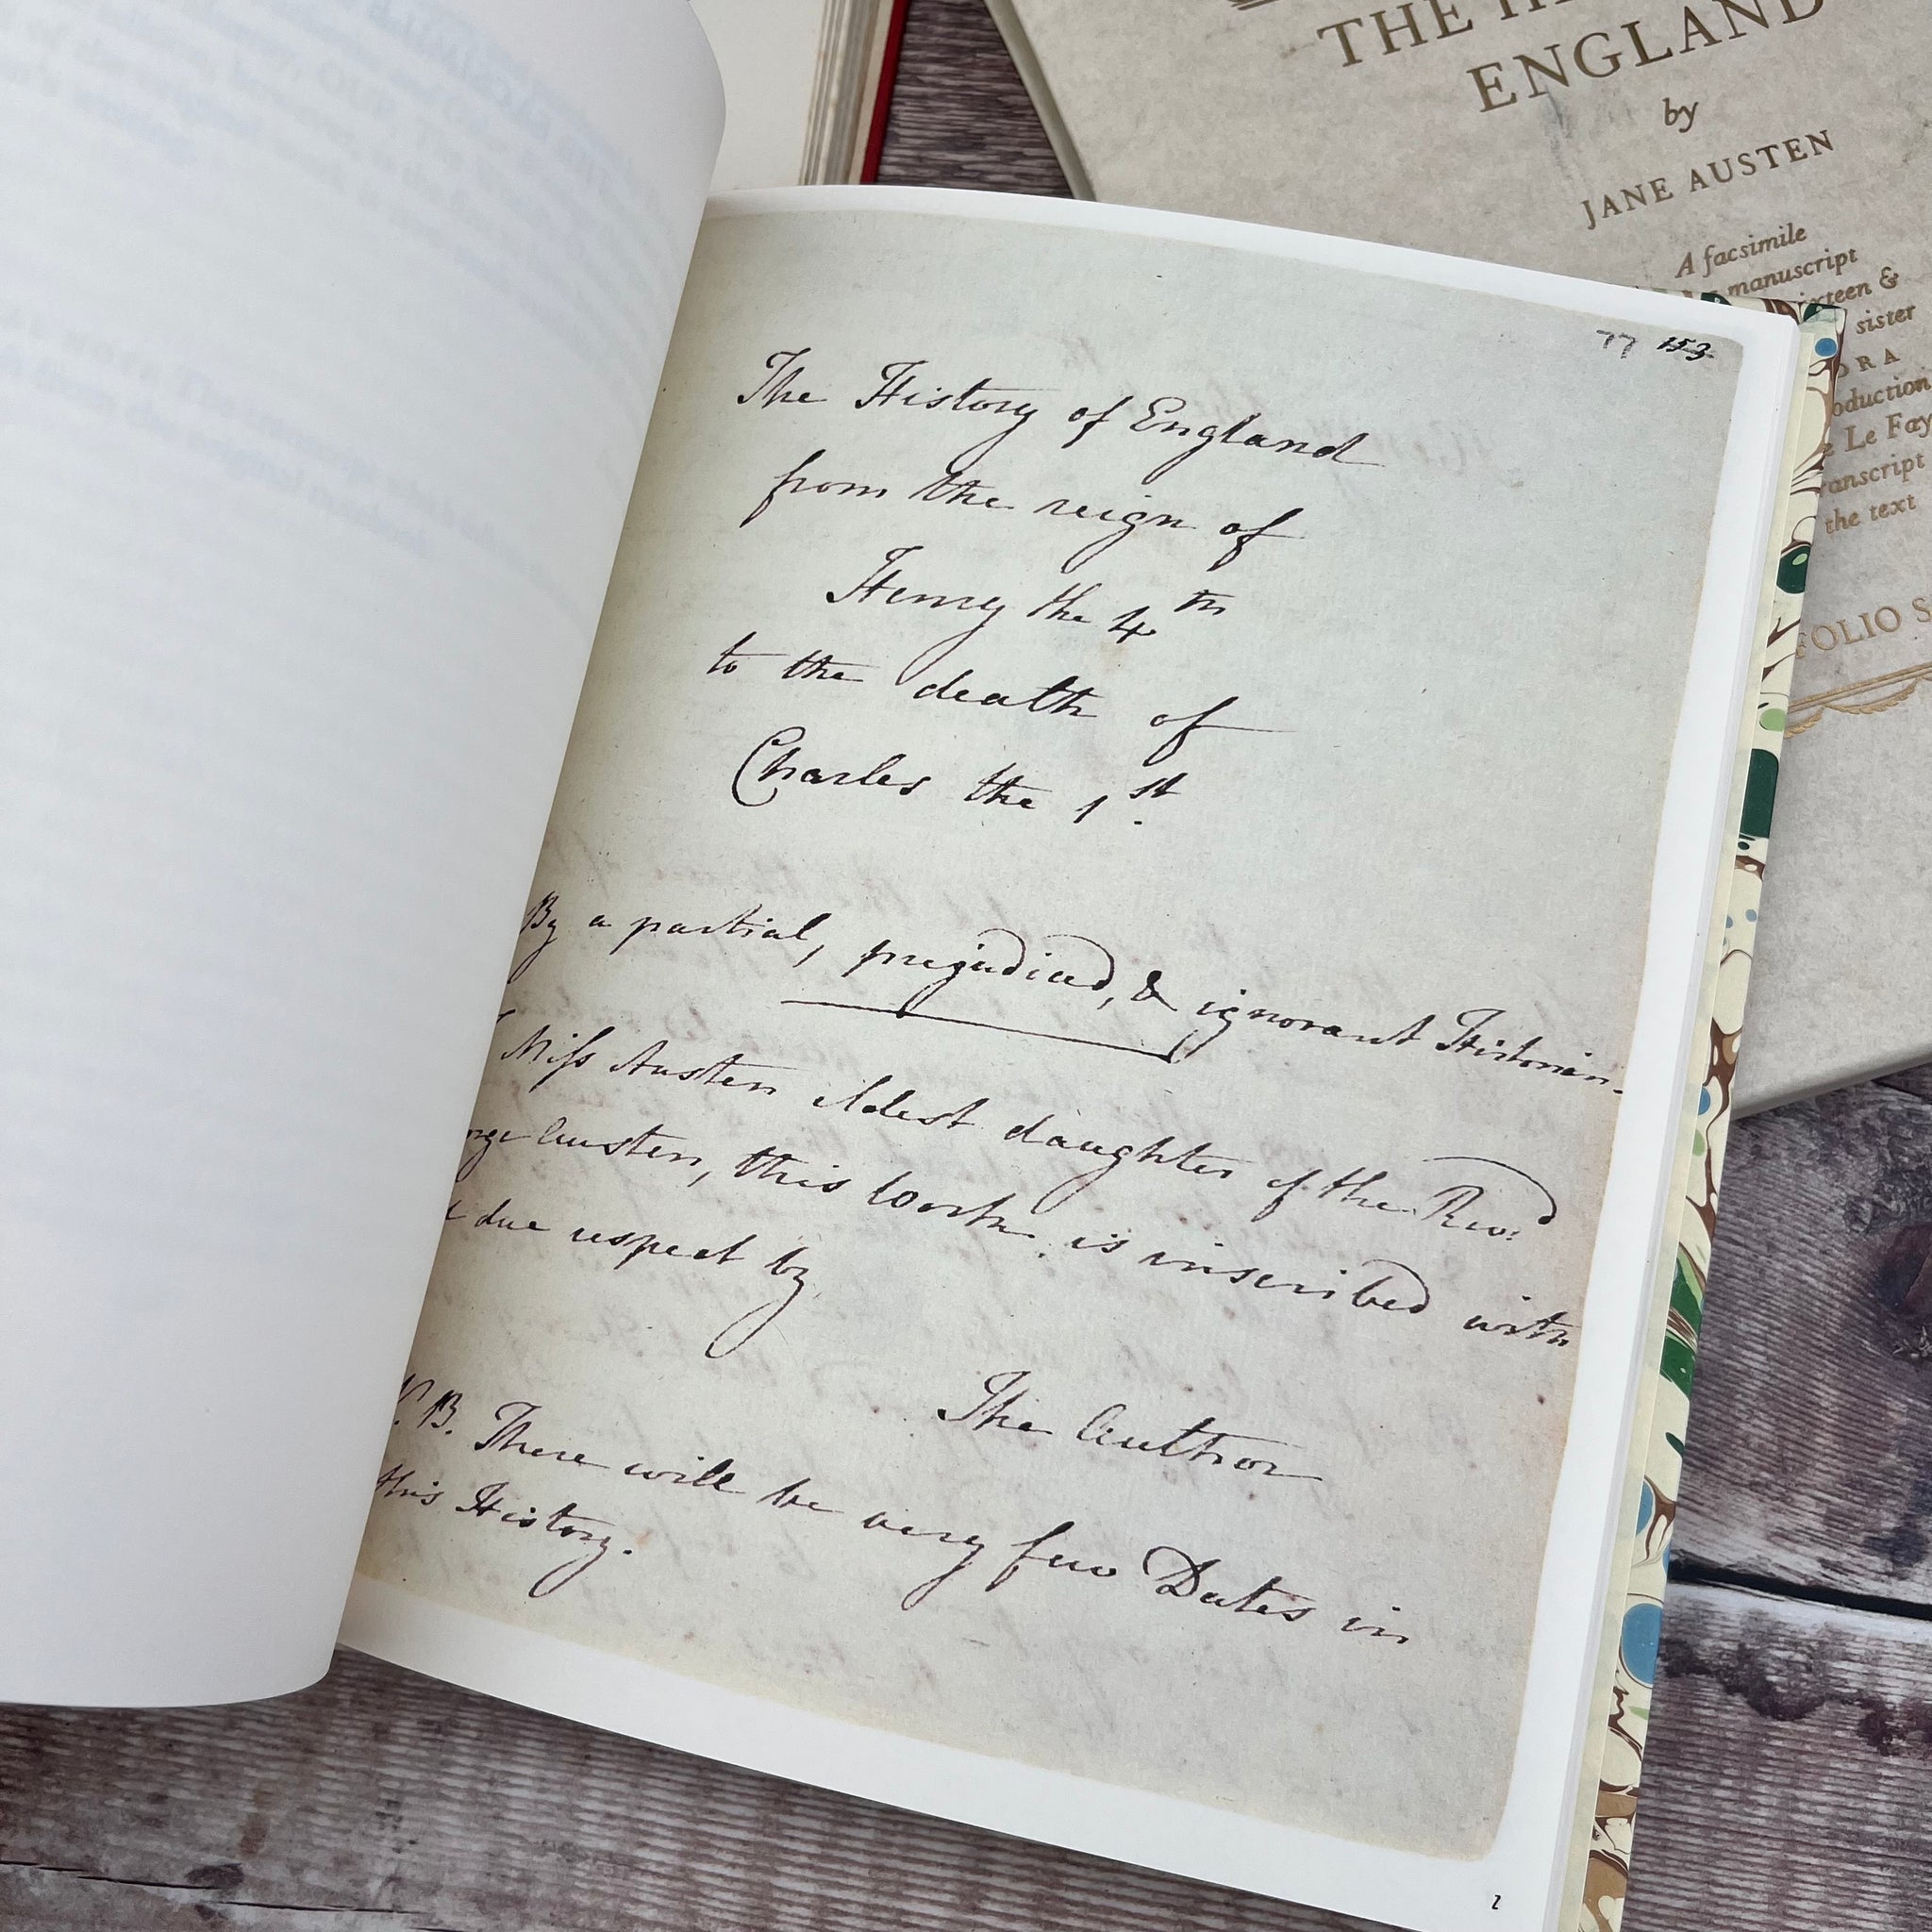 THE
ENGLAND
by
JANE AUSTEN
A facsimile
manuscript
sister
the text
FOLIO S
77 153
The History of England
from the reign of
Henry the 4th
to the death of
Charles the 1st.
By a partial, prejudiced, & ignorant Historian.
Miss Austen eldest daughter of the Revd.
Austen, this work is inscribed with
due respect by
The Author
N.B. There will be very few Dates in
this History.
2